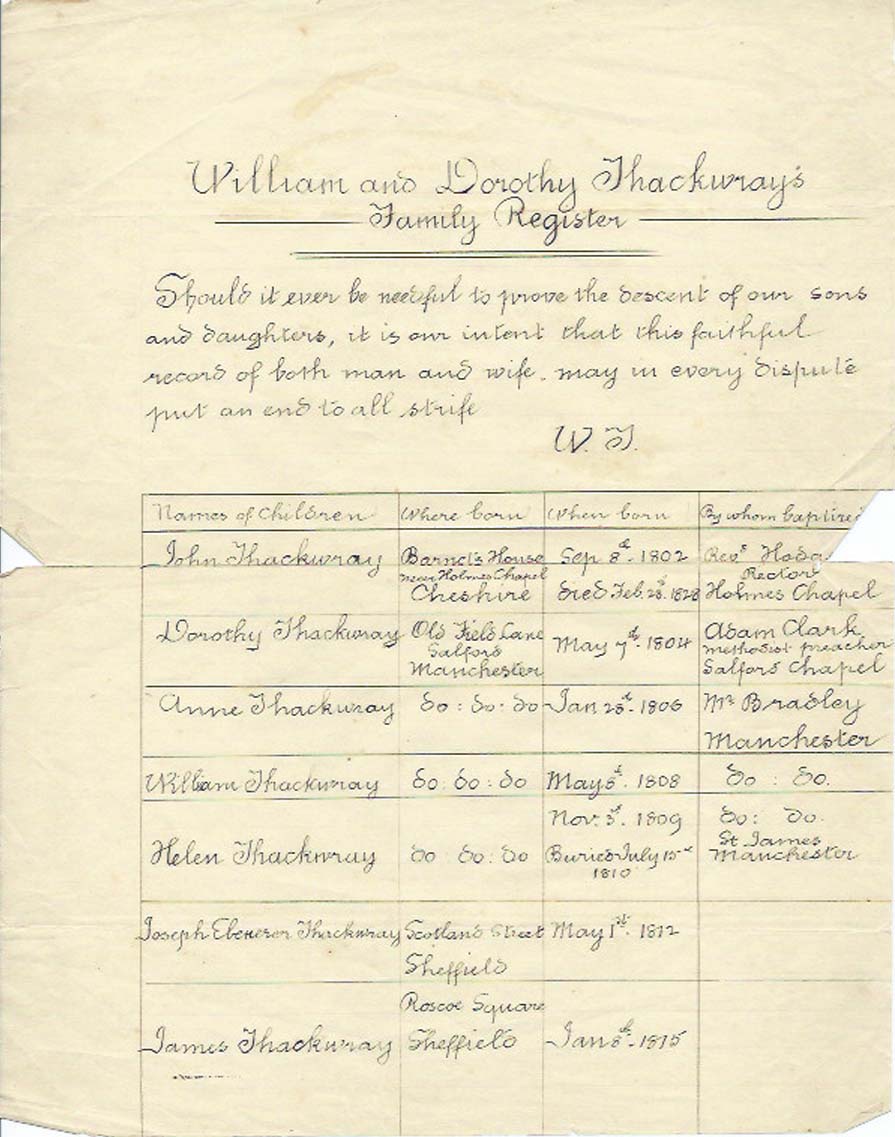 William and Dorothy Thackwray's
Family Register
Should it ever be needful to prove the descent of our sons
and daughters, it is our intent that this faithful
record of both man and wife. may in every dispute
put an end to all strife
W. T.
Names of Children Where born When born By whom baptized
John Thackwray Barnet's House Sep 8th. 1802 Revd
near Holmes Chapel Rector
Cheshire died Feb. 28. 1828 Holmes Chapel
Dorothy Thackwray Old Field Lane May 7th. 1804 Adam Clark
Salford Methodist preacher
Manchester Salford Chapel
Anne Thackwray do : do : do Jan 1806 Mr Bradley
Manchester
William Thackwray do : do : do May 1808 do : do.
Nov. 3d. 1809 do : do.
Helen Thackwray do do : do Buried July 15 St James
1810 Manchester
Joseph Ebenezer Thackwray Scotland Street May 1st. 1812
Sheffield
Roscoe Square
James Thackwray Sheffield Jan 8th. 1815